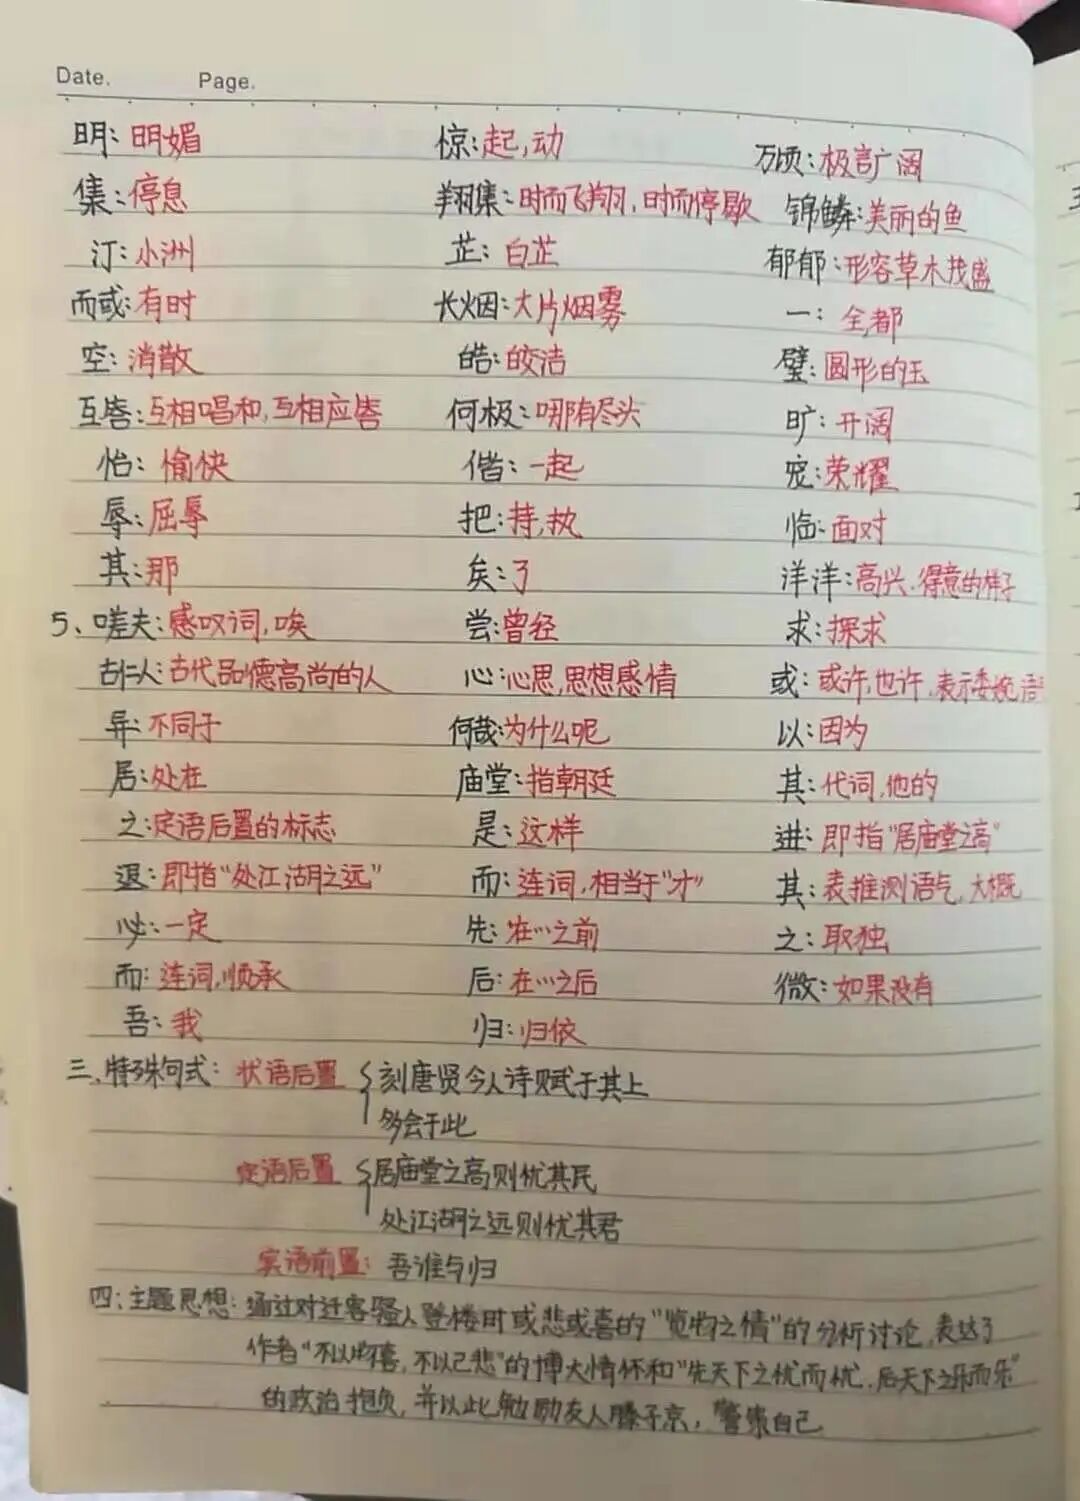 Date. Page.
明:明媚 惊:起,动 万顷:极言广阔
集:停息 翔集:时而飞翔,时而停歇 锦鳞:美丽的鱼
汀:小洲 芷:白芷 郁郁:形容草木茂盛
而或:有时 长烟:大片烟雾 一:全,都
空:消散 皓:皎洁 璧:圆形的玉
互答:互相唱和,互相应答 何极:哪有尽头 旷:开阔
怡:愉快 偕:一起 宠:荣耀
辱:屈辱 把:持,执 临:面对
其:那 矣:了 洋洋:高兴、得意的样子
5、嗟夫:感叹词,唉 尝:曾经 求:探求
古仁人:古代品德高尚的人 心:心思,思想感情 或:或许,也许,表示委婉语
异:不同于 何哉:为什么呢 以:因为
居:处在 庙堂:指朝廷 其:代词,他的
之:定语后置的标志 是:这样 进:即指"居庙堂之高"
退:即指"处江湖之远" 而:连词,相当于"才" 其:表推测语气,大概
必:一定 先:在…之前 之:取独
而:连词,顺承 后:在…之后 微:如果没有
吾:我 归:归依
三、特殊句式:状语后置 刻唐贤今人诗赋于其上
多会于此
定语后置 居庙堂之高则忧其民
处江湖之远则忧其君
宾语前置:吾谁与归
四:主题思想:通过对迁客骚人登楼时或悲或喜的"览物之情"的分析讨论,表达了
作者"不以物喜,不以己悲"的博大情怀和"先天下之忧而忧,后天下之乐而乐"
的政治抱负,并以此勉励友人滕子京,警策自己